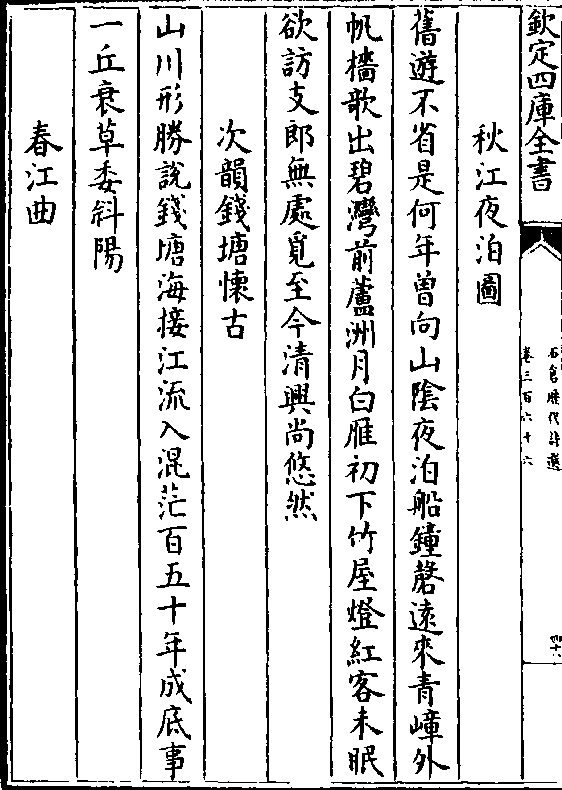 欽定四庫全書
石倉歷代詩選
卷三百六十六
四十八
秋江夜泊圖
舊遊不省是何年曾向山陰夜泊船鐘磬遠來青嶂外
帆檣歌出碧灣前蘆洲月白雁初下竹屋燈紅客未眠
欲訪支郎無處覓至今清興尚悠然
次韻錢塘懷古
山川形勝說錢塘海接江流入混茫百五十年成底事
一丘衰草委斜陽
春江曲